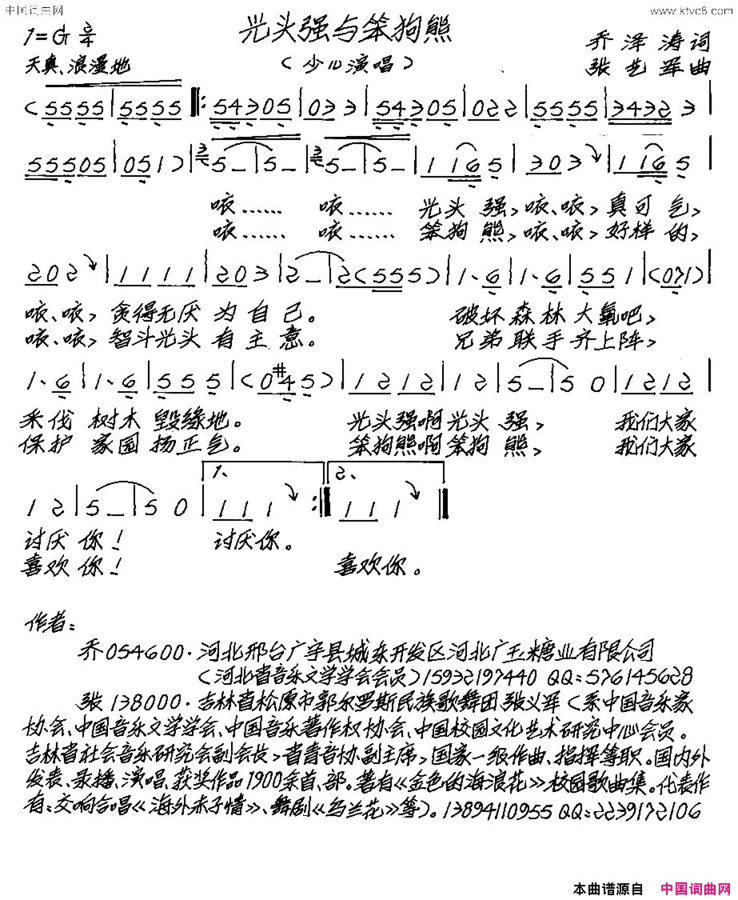 中国词曲网 www.ktvc8.com
光头强与笨狗熊
1=G 2/4 乔泽涛词
天真、浪漫地 (少儿演唱) 张艺军曲
(5555|5555‖:54305|03 3|54305|022|5555|3432 3|
55505|051)|5–|5–|5–|5–|1 165|303|1 165|
咴…… 咴…… 光头 强,咴、咴,真可 气,
咴…… 咴…… 笨狗 熊,咴、咴,好样 的,
202|1111|203|2–|2(555)|1、6|1、6|551|(071)|
咴、咴,贪得无厌 为 自 己。 破坏 森林 大氧吧,
咴、咴,智斗光头 有 主 意。 兄弟 联手 齐上阵,
1、6|1、6|555 5|(0#45)|1212|12|5–|50|1212|
采伐 树木 毁绿地。 光头强啊 光头 强, 我们大家
保护 家园 扬正气。 笨狗熊啊 笨狗 熊, 我们大家
12|5–|50|1、111:‖2、111‖
讨厌 你! 讨厌你。
喜欢 你! 喜欢你。
作者:
乔054600·河北邢台广宗县城东开发区河北广玉糖业有限公司
(河北省音乐文学学会会员)15932197440 QQ:576145628
张138000·吉林省松原市郭尔罗斯民族歌舞团张义军(系中国音乐家
协会、中国音乐文学学会、中国音乐著作权协会、中国校园文化艺术研究中心会员。
吉林省社会音乐研究会副会长,省青音协副主席,国家一级作曲、指挥等职。国内外
发表、录播、演唱、获奖作品1900余首、部。著有《金色的海浪花》校园歌曲集。代表作
有:交响合唱《海外赤子情》、舞剧《乌兰花》等)。13894110955 QQ:2239172106
本曲谱源自 中国词曲网